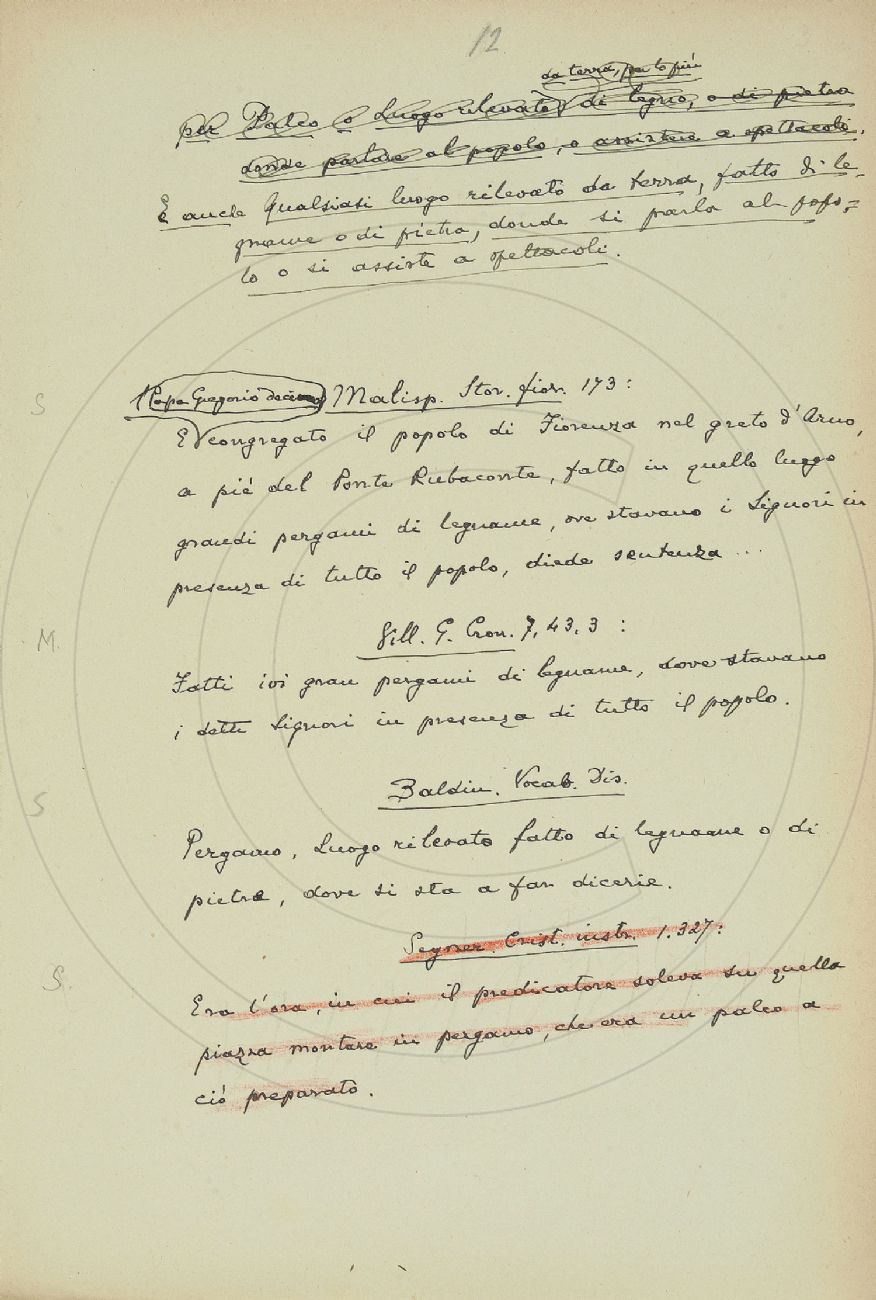 12
da terra, per lo più
per Palco o Luogo rilevato di legno, o di pietra
donde parlare al popolo, o assistere a spettacoli.
E anche Qualsiasi luogo rilevato da terra, fatto di le-
gname o di pietra, donde si parla al popo-
lo o si assiste a spettacoli.
S
Papa Gregorio decimo Malisp. Stor. fior. 173:
E congregato il popolo di Fiorenza nel greto d'Arno,
a piè del Ponte Rubaconte, fatto in quello luogo
grandi pergami di legname, ove stavano i Signori in
presenza di tutto il popolo, diede sentenza ...
M. Vill. G. Cron. 7, 43, 3 :
Fatti ivi gran pergami di legname, dove stavano
i detti Signori in presenza di tutto il popolo.
S Baldin. Vocab. Dis.
Pergamo, Luogo rilevato fatto di legname o di
pietra, dove si sta a far dicerie.
S. Segner. Crist. instr. 1. 327:
Era l'ora, in cui il predicatore soleva su quella
piazza montare in pergamo, che era un palco a
ciò preparato.